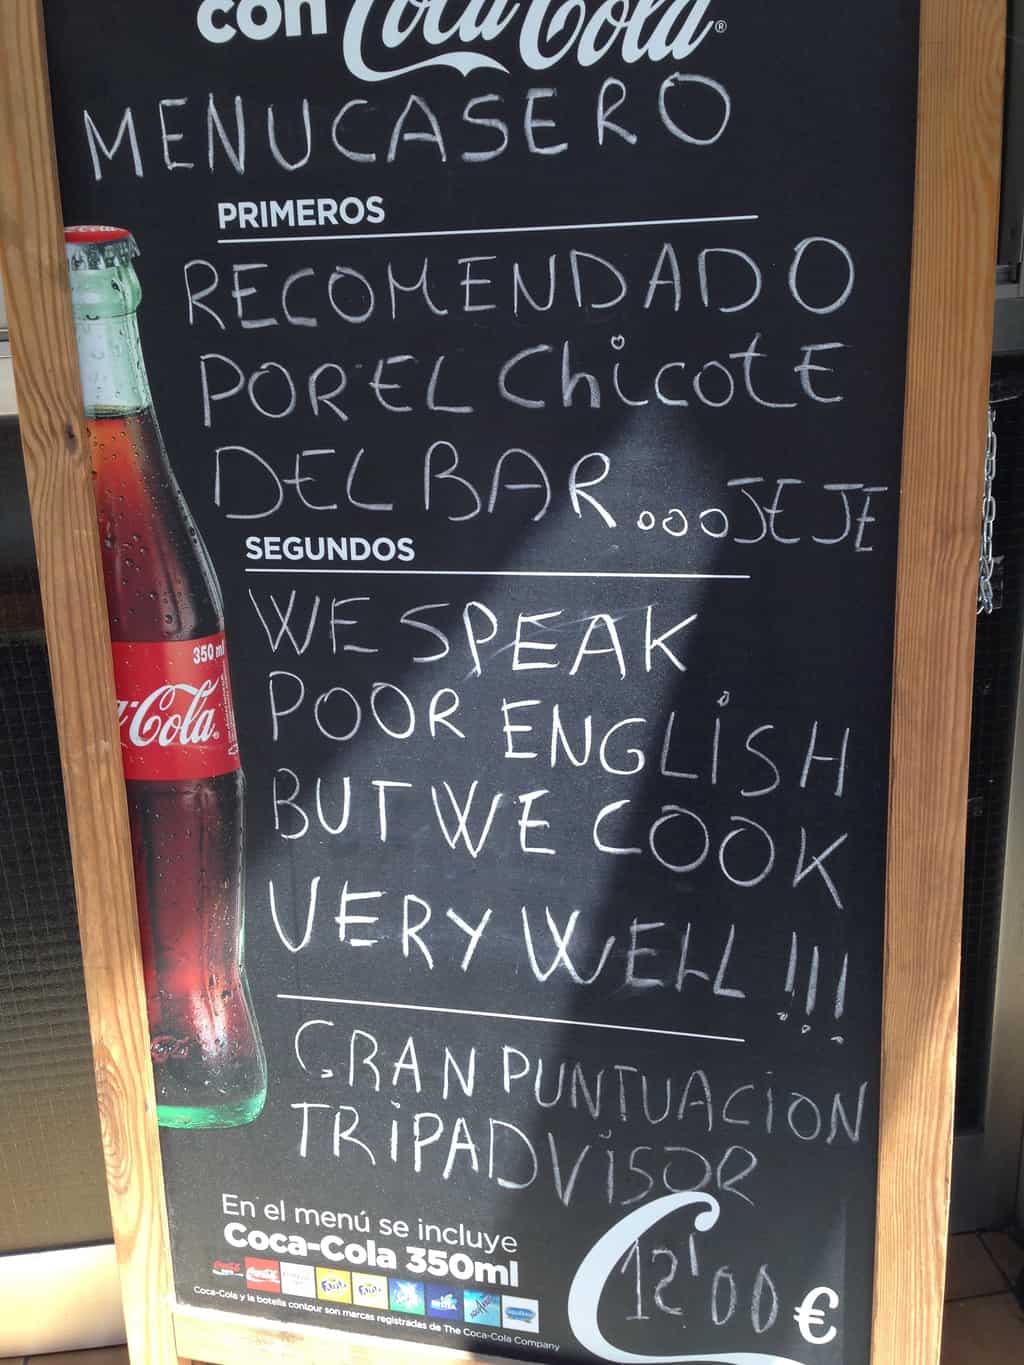 con Coca-Cola®
MENU CASERO
PRIMEROS
RECOMENDADO
POR EL ChicotE
DEL BAR...JEJE
SEGUNDOS
WE SPEAK
POOR ENGLiSH
BUT WE COOK
VERY WELL!!!
GRAN PUNTUACiON
TRiPADViSOR
350 ml
Coca-Cola
En el menú se incluye
Coca-Cola 350ml
Coca-Cola y la botella contour son marcas registradas de The Coca-Cola Company
12'00 €